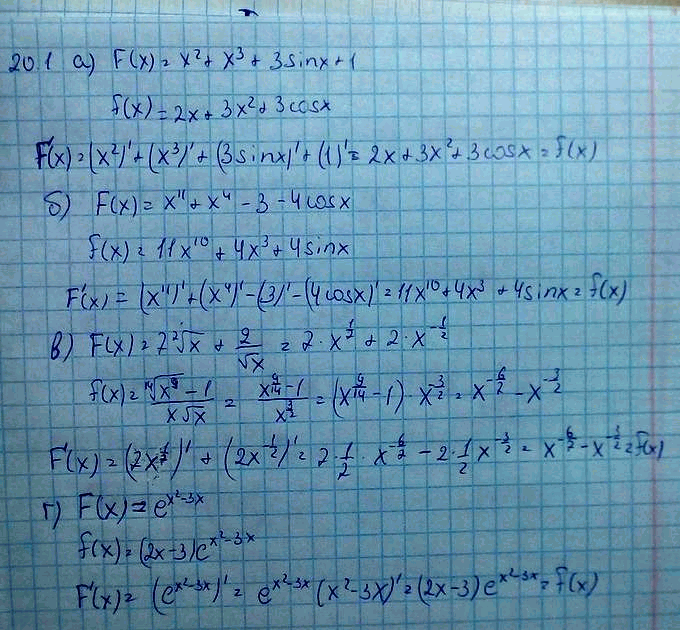 20.1 а) F(x) = x² + x³ + 3sinx + 1
f(x) = 2x + 3x² + 3cosx
F'(x) = (x²)' + (x³)' + (3sinx)' + (1)' = 2x + 3x² + 3cosx = f(x)
б) F(x) = x¹¹ + x⁴ - 3 - 4cosx
f(x) = 11x¹⁰ + 4x³ + 4sinx
F'(x) = (x¹¹)' + (x⁴)' - (3)' - (4cosx)' = 11x¹⁰ + 4x³ + 4sinx = f(x)
в) F(x) = 7 ⁷√x + 2/√x = 7·x^(1/7) + 2·x^(-1/2)
f(x) = (¹⁴√x⁹ - 1)/(x√x) = (x^(9/14) - 1)/x^(3/2) = (x^(9/14) - 1)·x^(-3/2) = x^(-6/7) - x^(-3/2)
F'(x) = (7x^(1/7))' + (2x^(-1/2))' = 7·1/7·x^(-6/7) - 2·1/2 x^(-3/2) = x^(-6/7) - x^(-3/2) = f(x)
г) F(x) = e^(x²-3x)
f(x) = (2x-3)e^(x²-3x)
F'(x) = (e^(x²-3x))' = e^(x²-3x) (x²-3x)' = (2x-3)e^(x²-3x) = f(x)